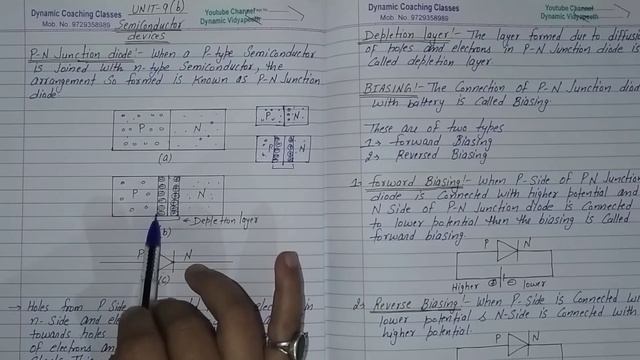 Dynamic Coaching Classes
Mob. No. 9729358989
UNIT-9(b)
Youtube Channel
Dynamic Vidyapeeth
Semiconductor
devices
P-N Junction diode :- When a P-type Semiconductor
is Joined with n-type Semiconductor, the
arrangement So formed is Known as P-N Junction
diode
P N
(a)
P N
P N
P N
← Depletion layer
(b)
P N
(c)
→ Holes from P Side
n-Side and
towards holes
of electrons
Dynamic Coaching Classes
Mob. No. 9729358989
Youtube Channel
Dynamic Vidyapeeth
Depletion layer :- The layer formed due to diffusion
of holes and electrons in P-N Junction diode is
Called depletion layer
BIASING :- The Connection of P-N Junction diod
with battery is Called Biasing
These are of two types
1 → forward Biasing
2 → Reversed Biasing
1 → forward Biasing :- When P-Side of P N Junction
diode is Connected with higher potential and
N Side of P N Junction diode is Connected
to lower potential then the biasing is Called
forward biasing.
P N
Higher + - lower
2 → Reverse Biasing :- When P-Side is Connected w
lower potential & N-Side is Connected with
higher potential.
P N